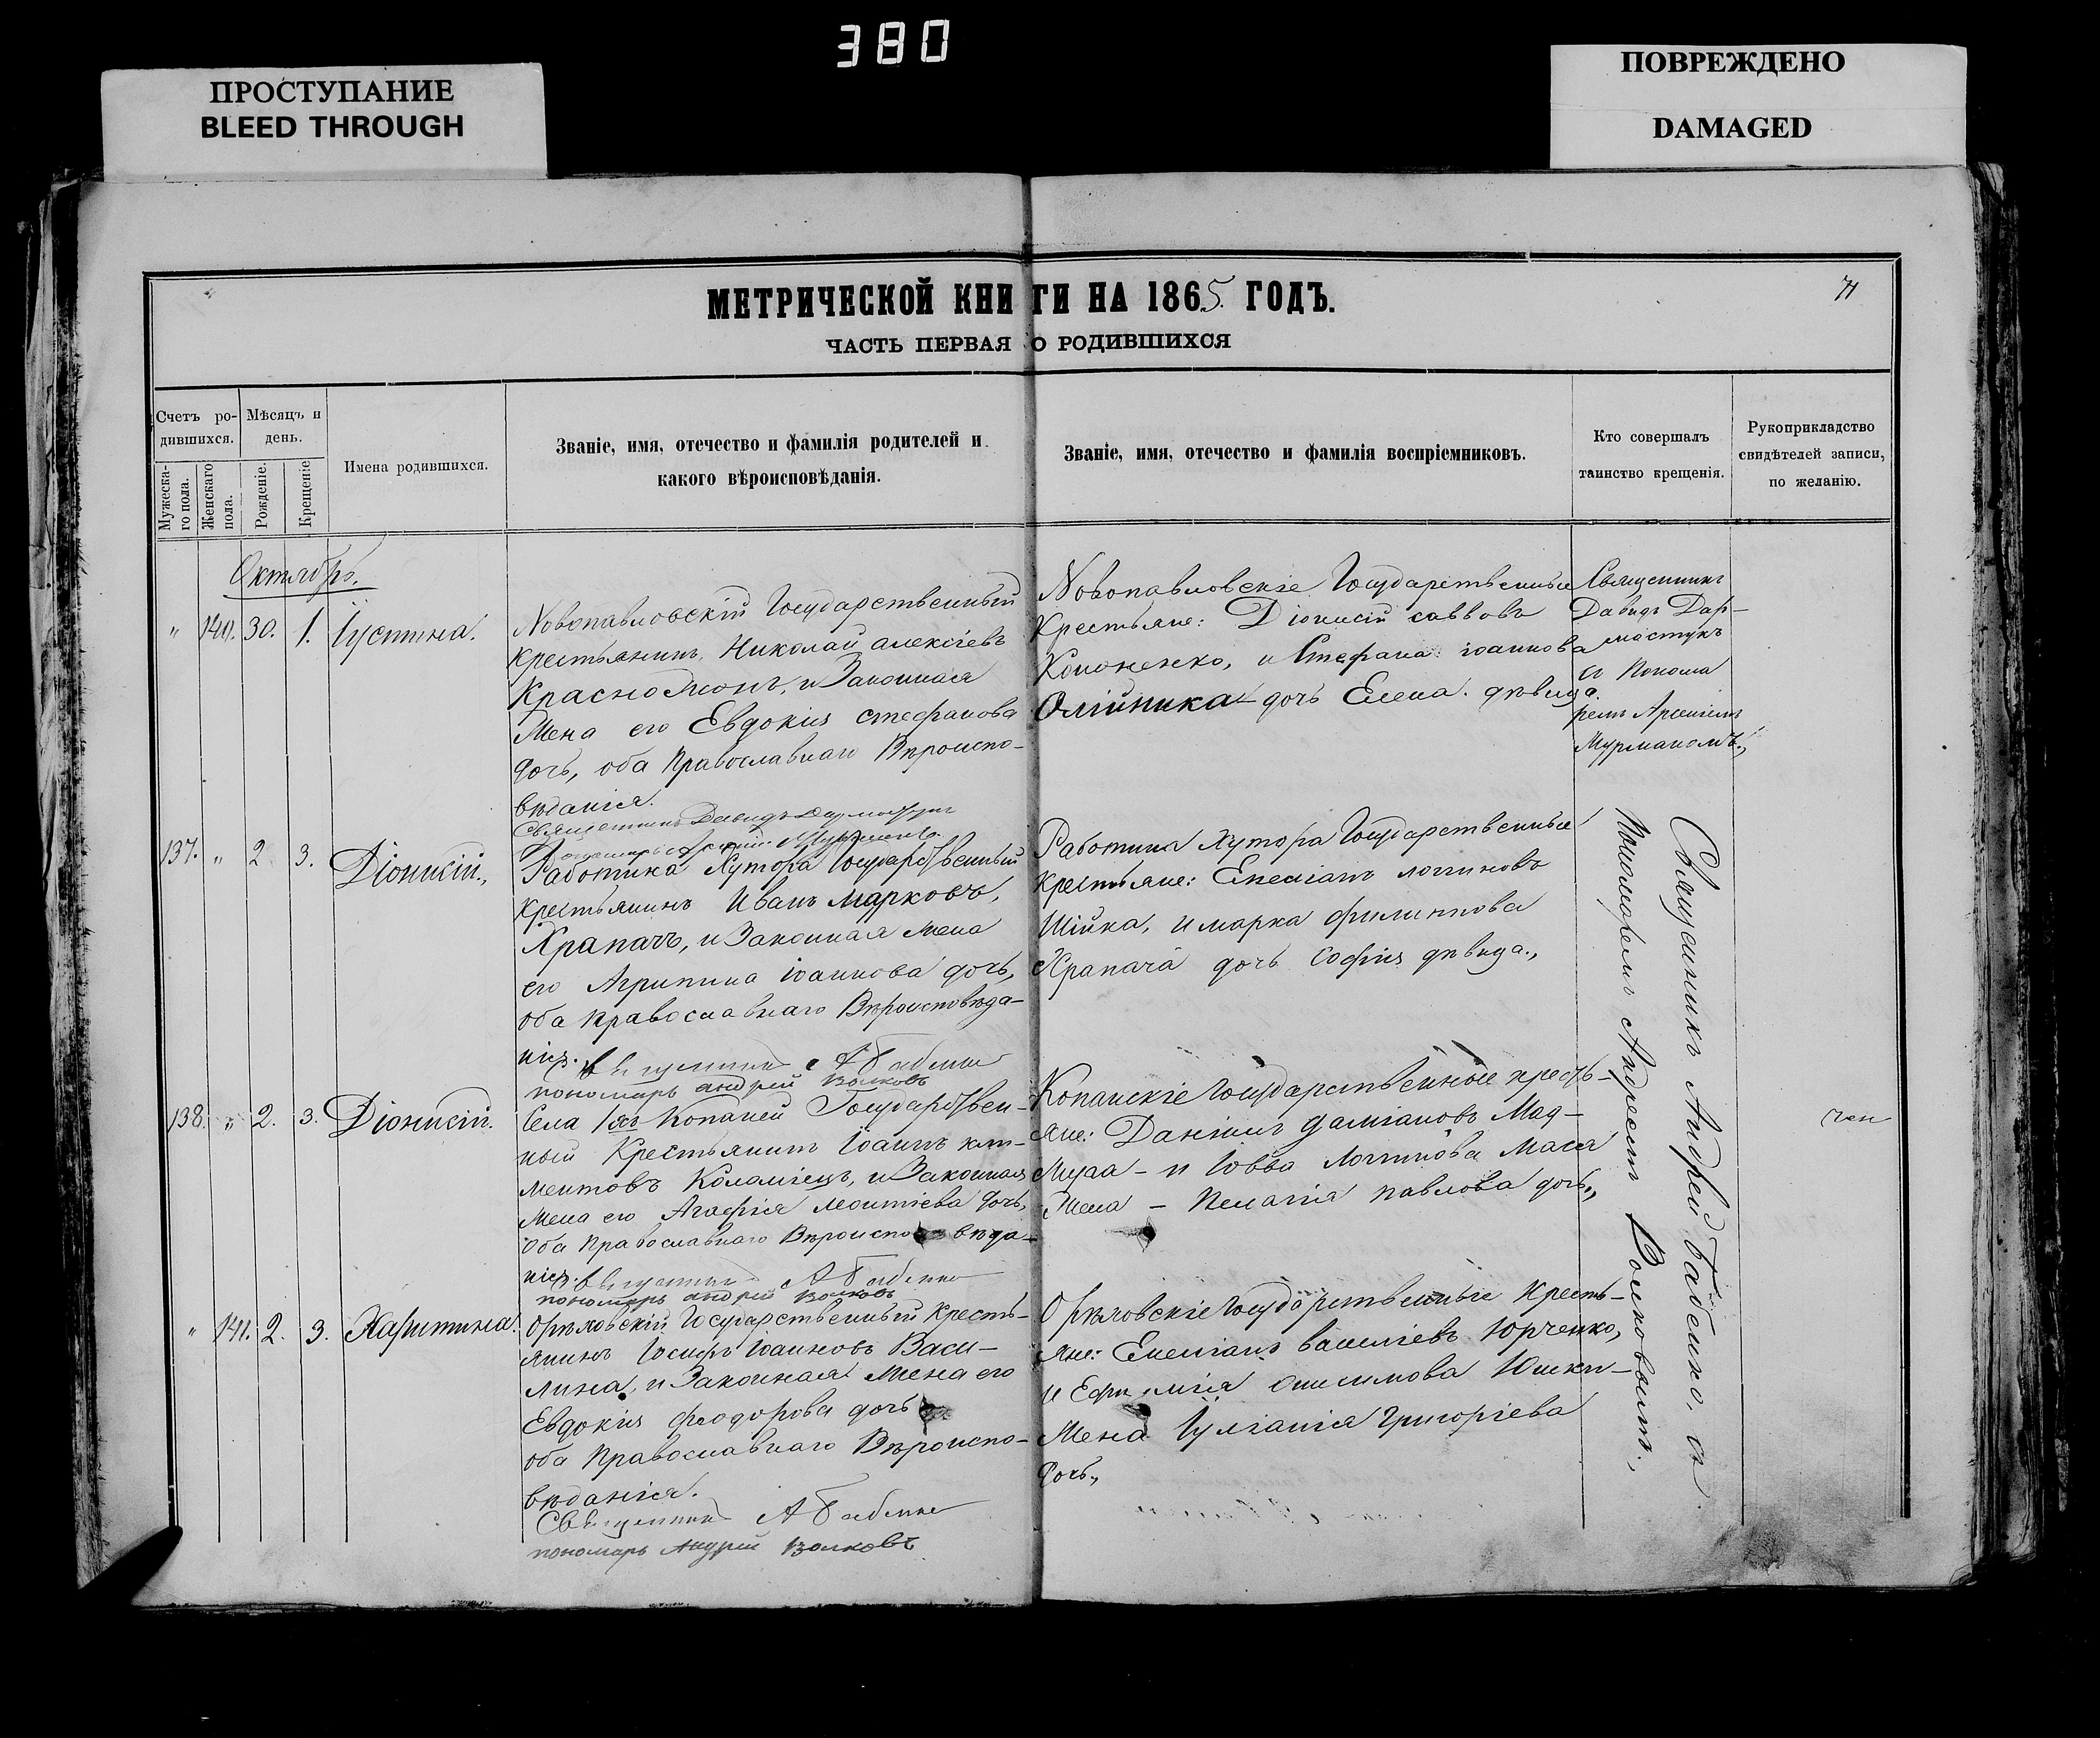 380
ПРОСТУПАНИЕ
BLEED THROUGH
ПОВРЕЖДЕНО
DAMAGED
МЕТРИЧЕСКОЙ КНИГИ НА 1865. ГОДЪ.
71
ЧАСТЬ ПЕРВАЯ О РОДИВШИХСЯ
Счетъ ро-
дившихся.
Мужеска-
го пола.
Женскаго
пола.
Мѣсяцъ и
день.
Рожденіе.
Крещеніе
Имена родившихся.
Званіе, имя, отечество и фамилія родителей и
какого вѣроисповѣданія.
Званіе, имя, отечество и фамилія воспріемниковъ.
Кто совершалъ
таинство крещенія.
Рукоприкладство
свидѣтелей записи,
по желанію.
Октябрь.
" 140. 30. 1. Іустина.
Новопавловскій Государственный
крестьянинъ Николай алексіевъ
Красно, и Законная
Жена его Евдокія стефанова
дочь, оба Православнаго Вѣроиспо-
вѣданія.
Священникъ Давидъ
Пономарь Арсеній
Новопавловскіе Государственные
Крестьяне: Діонисій саввовъ
Кононенко, и Стефана іоаннова
Олійника дочь Елена дѣвица.
Священникъ
Давидъ Дар-
мостукъ
съ Понома
ремъ Арсеніемъ
Мурманомъ.,
137. " 2 3. Діонисій.,
Работина Хутора Государственный
Крестьянинъ Иванъ Марковъ,
Храпачъ, и Законная жена
его Агрипина іоаннова дочь,
оба православнаго Вѣроисповѣда-
нія.
Священникъ А Бабенко
пономарь андрей волковъ
Работина Хутора Государственные
крестьяне: Емеліанъ логиновъ
Шійка, и марка филиппова
Храпача дочь Софія дѣвица.,
138. " 2. 3. Діонисій.
Села Копаней Государствен-
ный Крестьянинъ Іоаннъ кли-
ментовъ Коломіецъ, и Законная
Жена его Агафія леонтіева дочь,
оба Православнаго Вѣроисповѣда-
нія.
Священникъ А Бабенко
пономарь андрей волковъ
Копанскіе Государственные кресть-
яне: Даніилъ даміановъ
и Іовва Логинова
Жена - Пелагія павлова дочь.,
" 141. 2. 3. Харитина.
Орѣховскій Государственный Кресть-
янинъ Іосифъ Іоанновъ Васи-
лина, и Законная Жена его
Евдокія феодорова дочь
оба Православнаго Вѣроиспо-
вѣданія.
Священникъ А Бабенко
пономарь Андрей волковъ
Орѣховскіе Государственные Кресть-
яне: Емеліанъ василіевъ Юрченко,
и Ефимія онисимова
Жена Іуліанія Григоріева
дочь.,
Священникъ Андрей Бабенко, съ
Пономаремъ Андреемъ Волковымъ.,